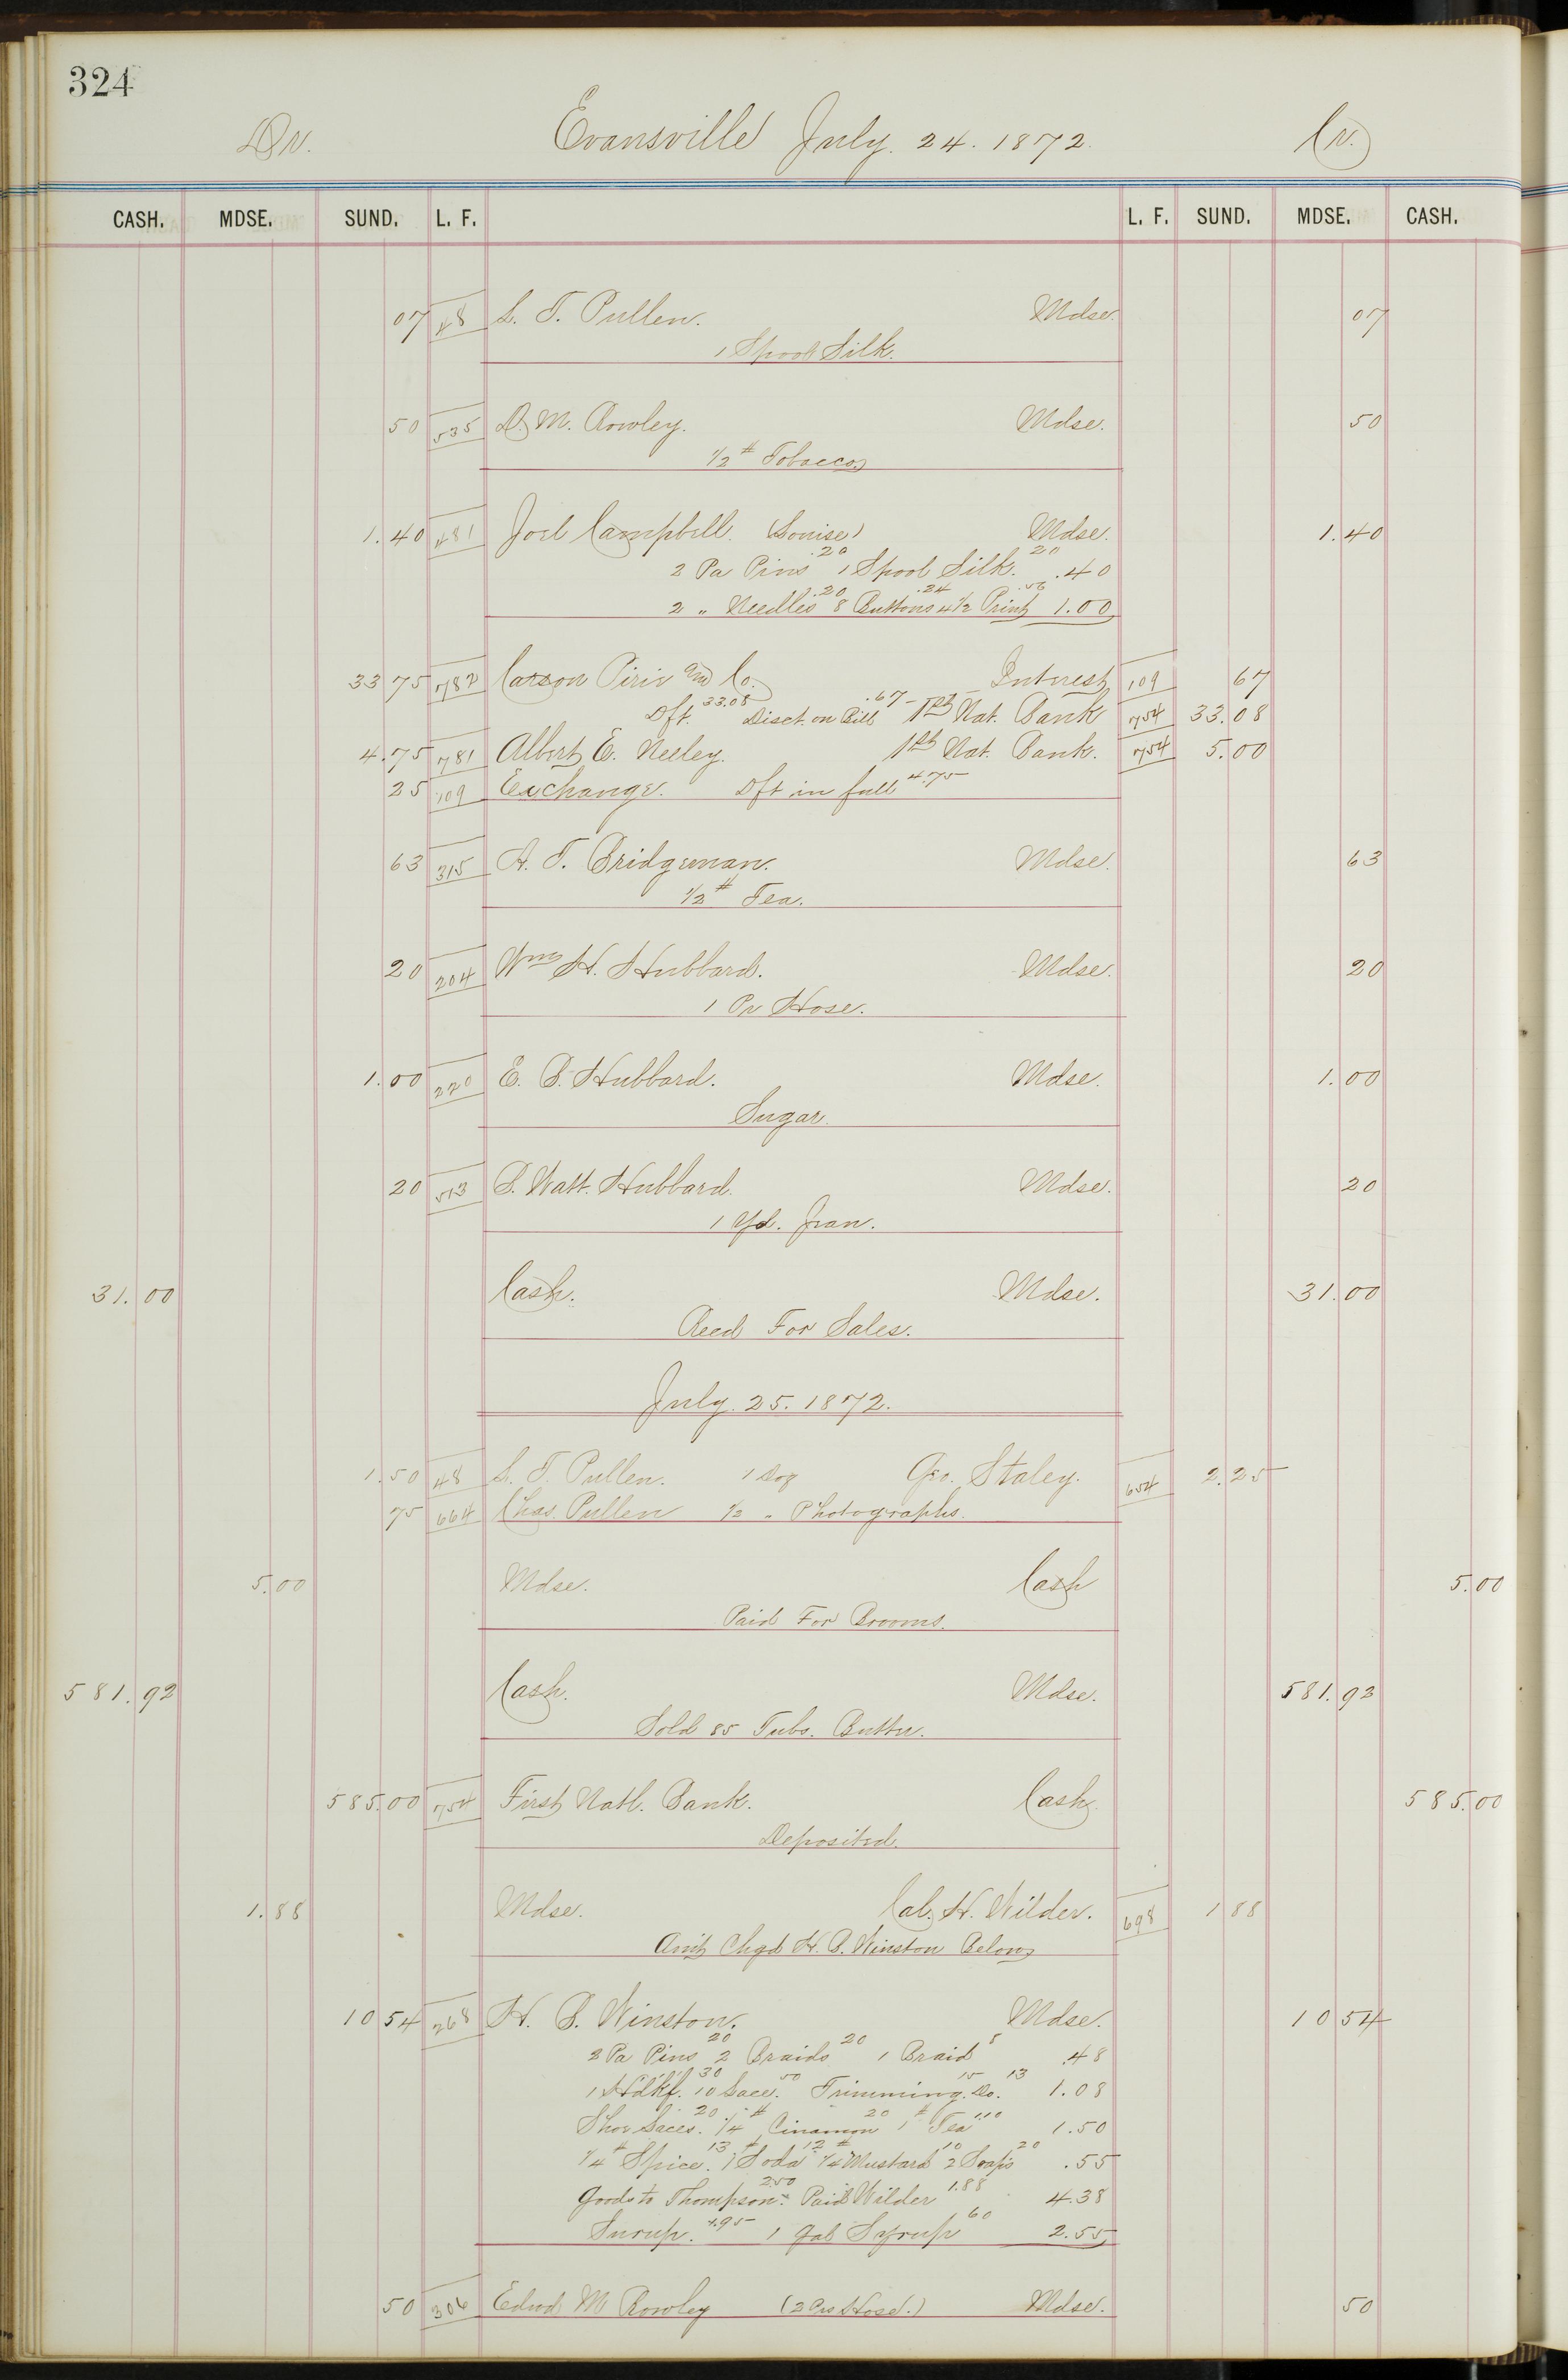 324
Dr. Evansville July. 24. 1872. Cr.
CASH. MDSE. SUND. L. F. L. F. SUND. MDSE. CASH.
07 48 L. T. Pullen. Mdse. 07
1 Spool Silk.
50 535 D. M. Rowley. Mdse. 50
1/2 # Tobacco
1.40 481 Joel Campbell. (Louise) Mdse. 1.40
2 Pa Pins .20 1 Spool Silk. 20 .40
2 " Needles .20 8 Buttons .24 4 1/2 Print .56 1.00
33 75 782 Carson Pirie and Co. Interest 109 67
Dft. 33.08 Disct. on Bill .67 - 1st Nat. Bank 754 33.08
4.75 781 Albert E. Neeley. 1st Nat. Bank. 754 5.00
25 109 Exchange. Dft in full 4.75
63 315 A. T. Bridgeman. Mdse. 63
1/2 # Tea.
20 204 Wm H. Hubbard. Mdse. 20
1 Pr Hose.
1.00 220 E. B. Hubbard. Mdse. 1.00
Sugar.
20 513 B. Watt. Hubbard. Mdse. 20
1 Yd. Jean.
31.00 Cash. Mdse. 31.00
Recd For Sales.
July. 25. 1872.
1.50 48 L. T. Pullen. 1 Doz Geo. Staley. 654 2.25
75 664 Chas. Pullen 1/2 " Photographs.
5.00 Mdse. Cash 5.00
Paid For Brooms.
581.92 Cash. Mdse. 581.92
Sold 85 Tubs. Butter.
585.00 754 First Natl. Bank. Cash. 585.00
Deposited.
1.88 Mdse. Cal. H. Wilder. 698 1 88
Amt Chgd H. B. Winston Below
10 54 268 H. B. Winston. Mdse. 10 54
2 Pa Pins 20 2 Braids 20 1 Braid 8 .48
1 Hdkf. 30 10 Lace. 50 Trimming. 15 Do. 13 1.08
Shoe Laces. 20 1/4 # Cinamon 20 1 # Tea 1.10 1.50
1/4 # Spice. 13 1 # Soda 12 1/4 # Mustard 10 2 Soaps 20 .55
Goods to Thompson. 2.50 Paid Wilder 1.88 4.38
Surup. 1.95 1 Gal Syrup 60 2.55
50 306 Edwd M Rowley (2 Prs Hose.) Mdse. 50